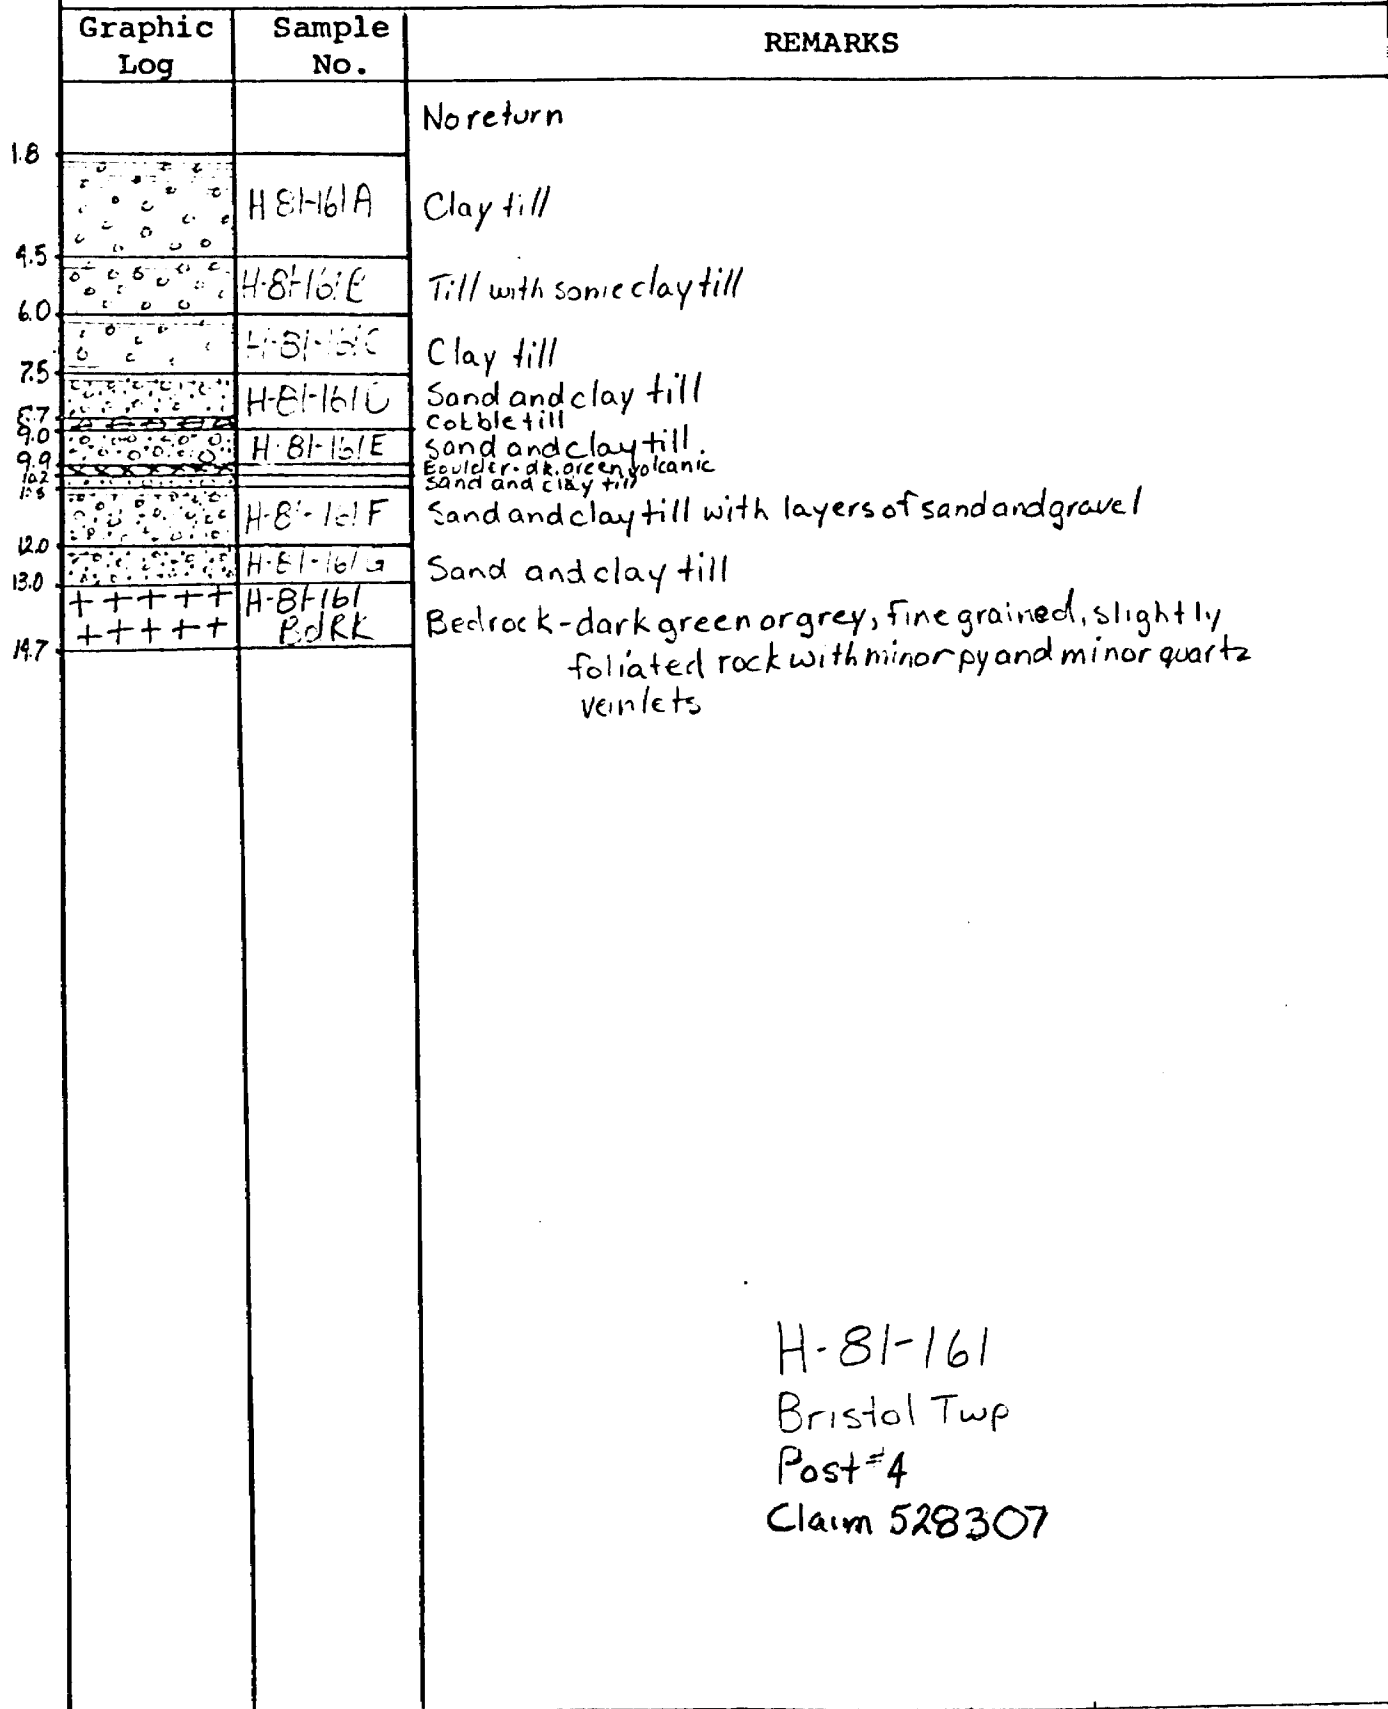 Graphic Log
Sample No.
REMARKS
No return
1.8
H 81-161A
Clay till
4.5
H-81-161B
Till with some clay till
6.0
H-81-161C
Clay till
7.5
H-81-161D
Sand and clay till
8.7
Cobble till
9.0
H-81-161E
Sand and clay till.
9.9
Boulder-dk.green volcanic
10.2
Sand and clay till
H-81-161F
Sand and clay till with layers of sand and gravel
12.0
H-81-161G
Sand and clay till
13.0
H-81-161
BdRK
Bedrock-dark green or grey, fine grained, slightly
foliated rock with minor py and minor quartz
veinlets
14.7
H-81-161
Bristol Twp
Post #4
Claim 528307